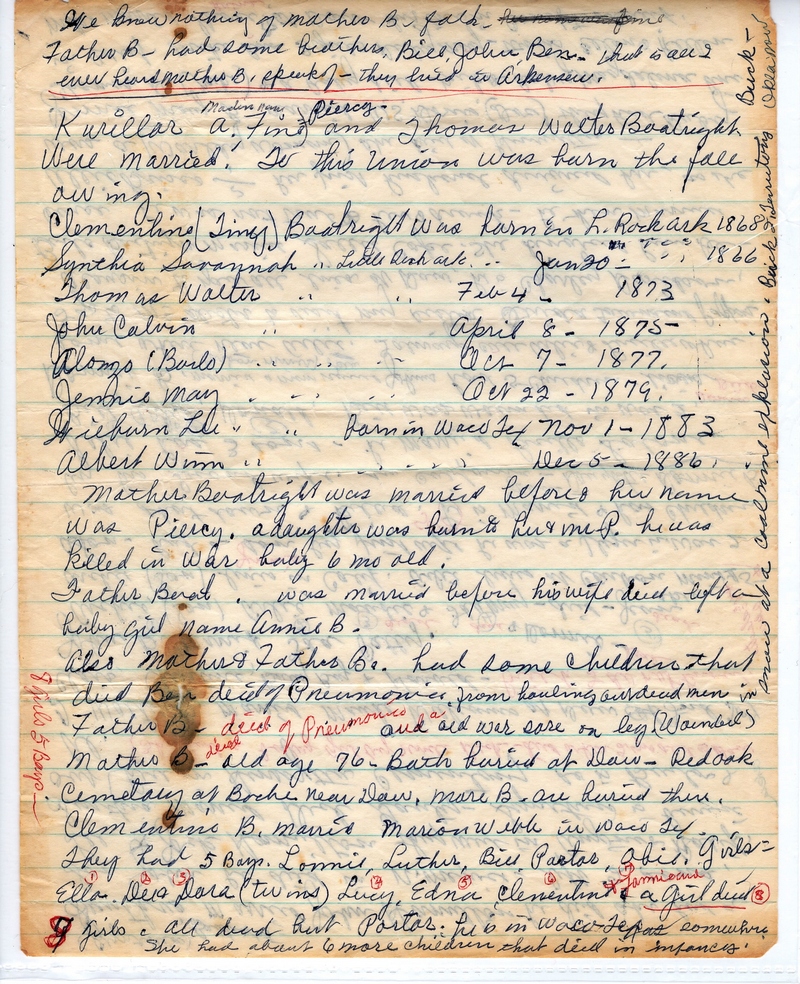 We know nothing of mother B. folk.
Father B - had some brothers, Bill, John, Ben - that is all I
ever heard mother B. speak of - they lived in Arkensew.
Maden name
Piercy -
Kurillar A. Fine and Thomas Walter Boatright
Were married. To this Union was born the foll
owing.
Clementine (Tiny) Boatright was born in L. Rock ark 1868
Synthia Savannah " Little Rock ark. .. Jan 20 - 1866
Thomas Walter " " Feb 4 - 1873
John Calvin " April 8 - 1875 -
Alonzo (Bado) " " " Oct 7 - 1877.
Jennie May " " " Oct 22 - 1879.
Wieburn Lee " " born in Waco Tex Nov 1 - 1883
Albert Winn " " Dec 5 - 1886.
Mother Boatright was married before her name
was Piercy. a daughter was born to her & mr P. he was
killed in War baby 6 mo old.
Father Boat. was married before his wife died left a
baby girl name Annie B.
Also Mother & Father Bs. had some children that
died Ben died of Pneumonica from hauling our dead men in
snow at a coalmine explosion. Buick I. Territory Buck - Oklahoma
Father B - died of Pneumonica and a old war sore on leg (Wounded)
Mother B - died old age 76 - Both buried at Dow - Redoak
Cemetary at Boche near Dow, more B. are buried there.
Clementine B. married Marion Webb in Waco Tex.
They had 5 Boys. Lonnie, Luther, Bill, Portor, Obie. Girls =
Ella. Dera Dora (twins) Lucy, Edna, Clementine & Fannie and a Girl died
① ② ③ ④ ⑤ ⑥ ⑧
8 girls. all dead but Portor. he is in Waco Texas somewhere
She had about 6 more children that died in infancey.
8 girls 5 Boys -